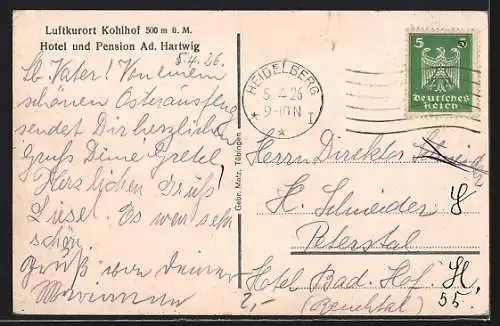 Luftkurort Kohlhof 500 m ü. M.
Hotel und Pension Ad. Hartwig
5.4.26.
Lb. Vater! Von einem
schönen Osterausflug
sendet Dir herzlichen
Gruß Deine Gretel
Herzlichen Gruß!
Luse. Es war sehr
schön.
Gruß von Deiner
Gebr. Metz, Tübingen
HEIDELBERG
5.4.26
9-10 N
I
5
5
Deutsches
Reich
Herrn Direktor
H. Schneider
Peterstal
Hotel Bad. Hof.
(Renchtal)
H,
55.
2,-